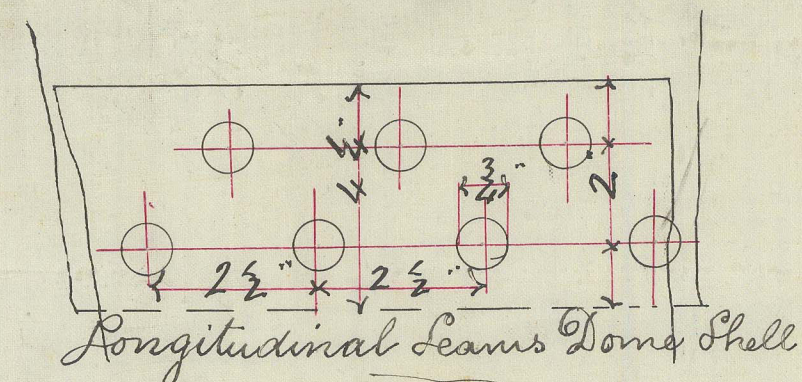 3/4"
2"
2 1/2" 2 1/2"
Longitudinal Seams Dome Shell